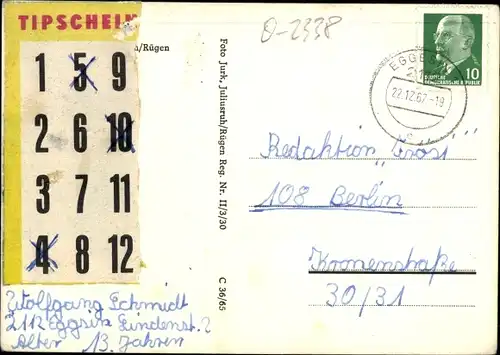 TIPSCHEIN
1 5 9
2 6 10
3 7 11
4 8 12
h/Rügen
Wolfgang Schmidt
2112 Eggesin Lindenst. 2
Alter 13 Jahren
Foto Jurk, Juliusruh/Rügen Reg. Nr. II/3/30
C 36/65
0-2338
EGGES
22.12.67-19
10
DEUTSCHE
DEMOKRATISCHE REPUBLIK
Redaktion "Frösi"
108 Berlin
Kronenstraße
30/31